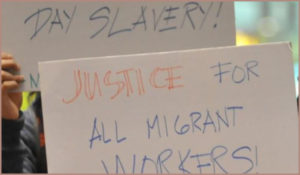 DAY SLAVERY!
JUSTICE FOR
ALL MIGRANT
WORKERS!